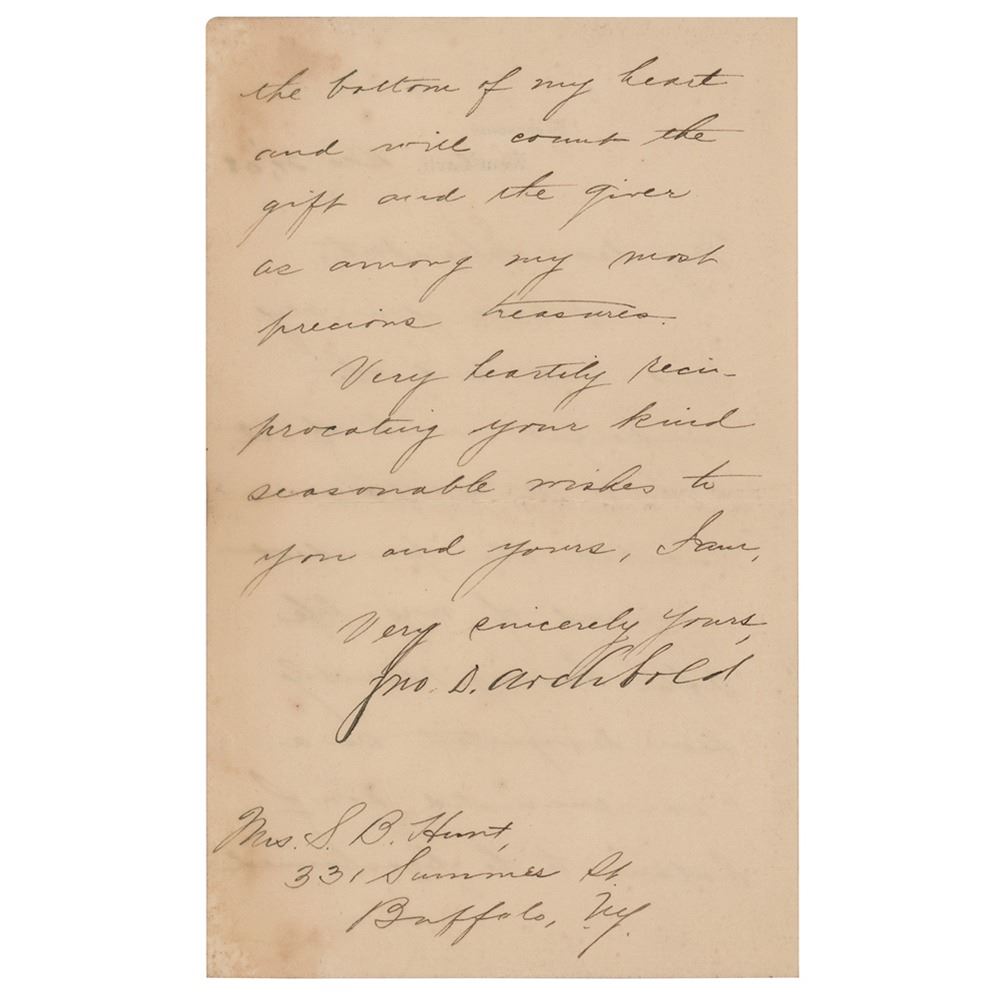 the bottom of my heart
and will count the
gift and the giver
as among my most
precious treasures.
Very heartily reci-
procating your kind
seasonable wishes to
you and yours, I am,
Very sincerely yours,
Jno. D. Archbold
Mrs. S. B. Hunt,
331 Summer St.
Buffalo, N.Y.